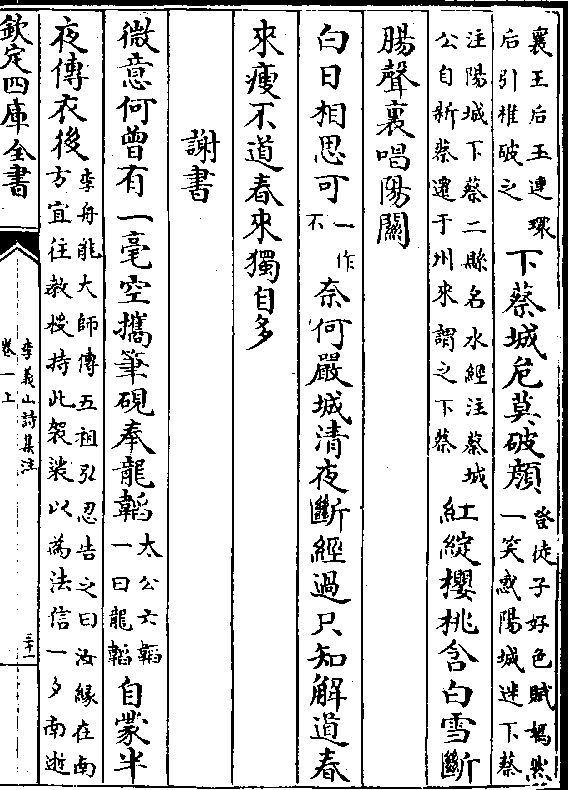 襄王后玉連環
后引椎破之
下蔡城危莫破顔
登徒子好色賦嫣然
一笑惑陽城迷下蔡
注陽城下蔡二縣名水經注蔡城
公自新蔡遷于州來謂之下蔡
紅綻櫻桃含白雪斷
腸聲裏唱陽關
白日相思可
一作
不
奈何嚴城清夜斷經過只知解道春
來瘦不道春來獨自多
謝書
微意何曾有一毫空攜筆硯奉龍韜
太公六韜
一曰龍韜
自蒙半
夜傳衣後
李舟能大師傳五祖弘忍告之曰汝緣在南
方宜往教授持此袈裟以為法信一夕南逝
欽定四庫全書
李義山詩集注
卷一上
三十一